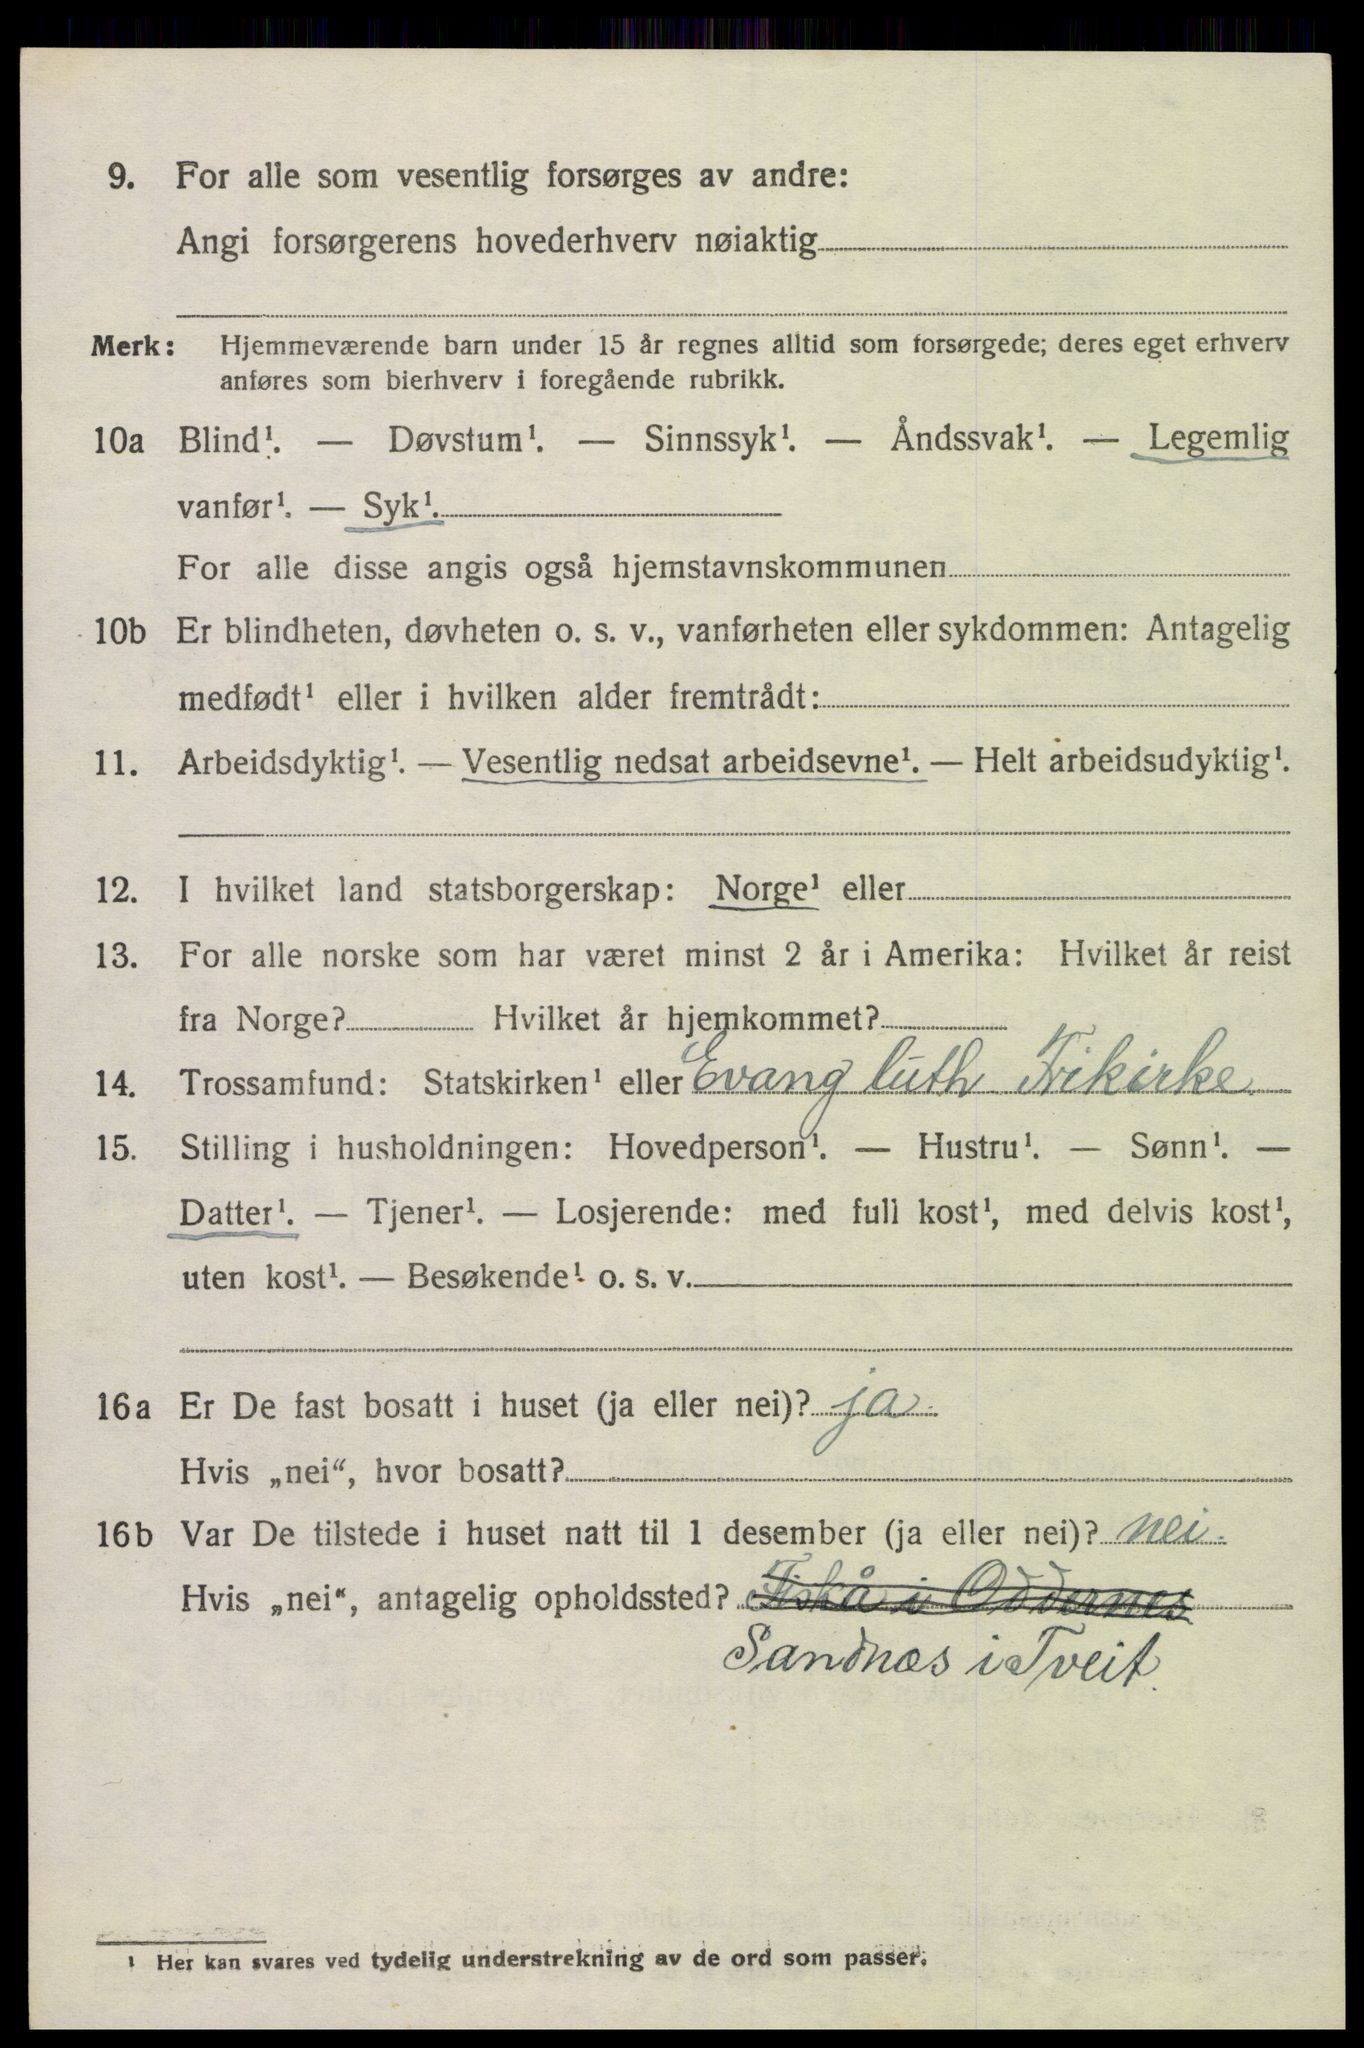 9. For alle som vesentlig forsørges av andre:
Angi forsørgerens hovederhverv nøiaktig
Merk: Hjemmeværende barn under 15 år regnes alltid som forsørgede; deres eget erhverv
anføres som bierhverv i foregående rubrikk.
10a Blind¹. — Døvstum¹. — Sinnssyk¹. — Åndssvak¹. — Legemlig
vanfør¹. — Syk¹.
For alle disse angis også hjemstavnskommunen
10b Er blindheten, døvheten o. s. v., vanførheten eller sykdommen: Antagelig
medfødt¹ eller i hvilken alder fremtrådt:
11. Arbeidsdyktig¹. — Vesentlig nedsat arbeidsevne¹. — Helt arbeidsudyktig¹.
12. I hvilket land statsborgerskap: Norge¹ eller
13. For alle norske som har været minst 2 år i Amerika: Hvilket år reist
fra Norge? Hvilket år hjemkommet?
14. Trossamfund: Statskirken¹ eller Evang luth Frikirke
15. Stilling i husholdningen: Hovedperson¹. — Hustru¹. — Sønn¹. —
Datter¹. — Tjener¹. — Losjerende: med full kost¹, med delvis kost¹,
uten kost¹. — Besøkende¹ o. s. v.
16a Er De fast bosatt i huset (ja eller nei)? ja.
Hvis „nei“, hvor bosatt?
16b Var De tilstede i huset natt til 1 desember (ja eller nei)? nei.
Hvis „nei“, antagelig opholdssted? Fiskå i Oddernes
Sandnæs i Tveit.
¹ Her kan svares ved tydelig understrekning av de ord som passer.